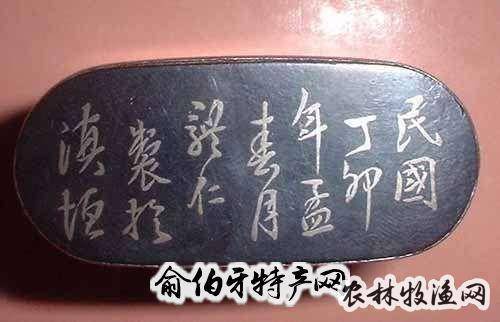 民國
丁卯
年孟
春月
體仁
製於
滇垣
俞伯牙特产网
农林牧渔网